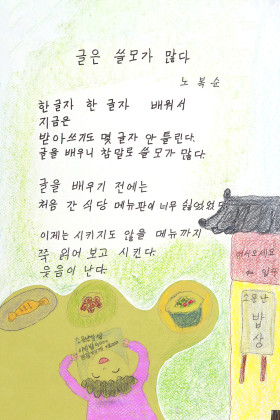 글은 쓸모가 많다
노 복 순
한글자 한 글자 배워서
지금은
받아쓰기도 몇 글자 안 틀린다.
글을 배우니 참말로 쓸 모가 많다.
글을 배우기 전에는
처음 간 식당 메뉴판이 너무 싫었었는데
이제는 시키지도 않을 메뉴까지
쭉 읽어 보고 시킨다.
웃음이 난다.
어서오세요
소문난
밥
상
소문난밥상